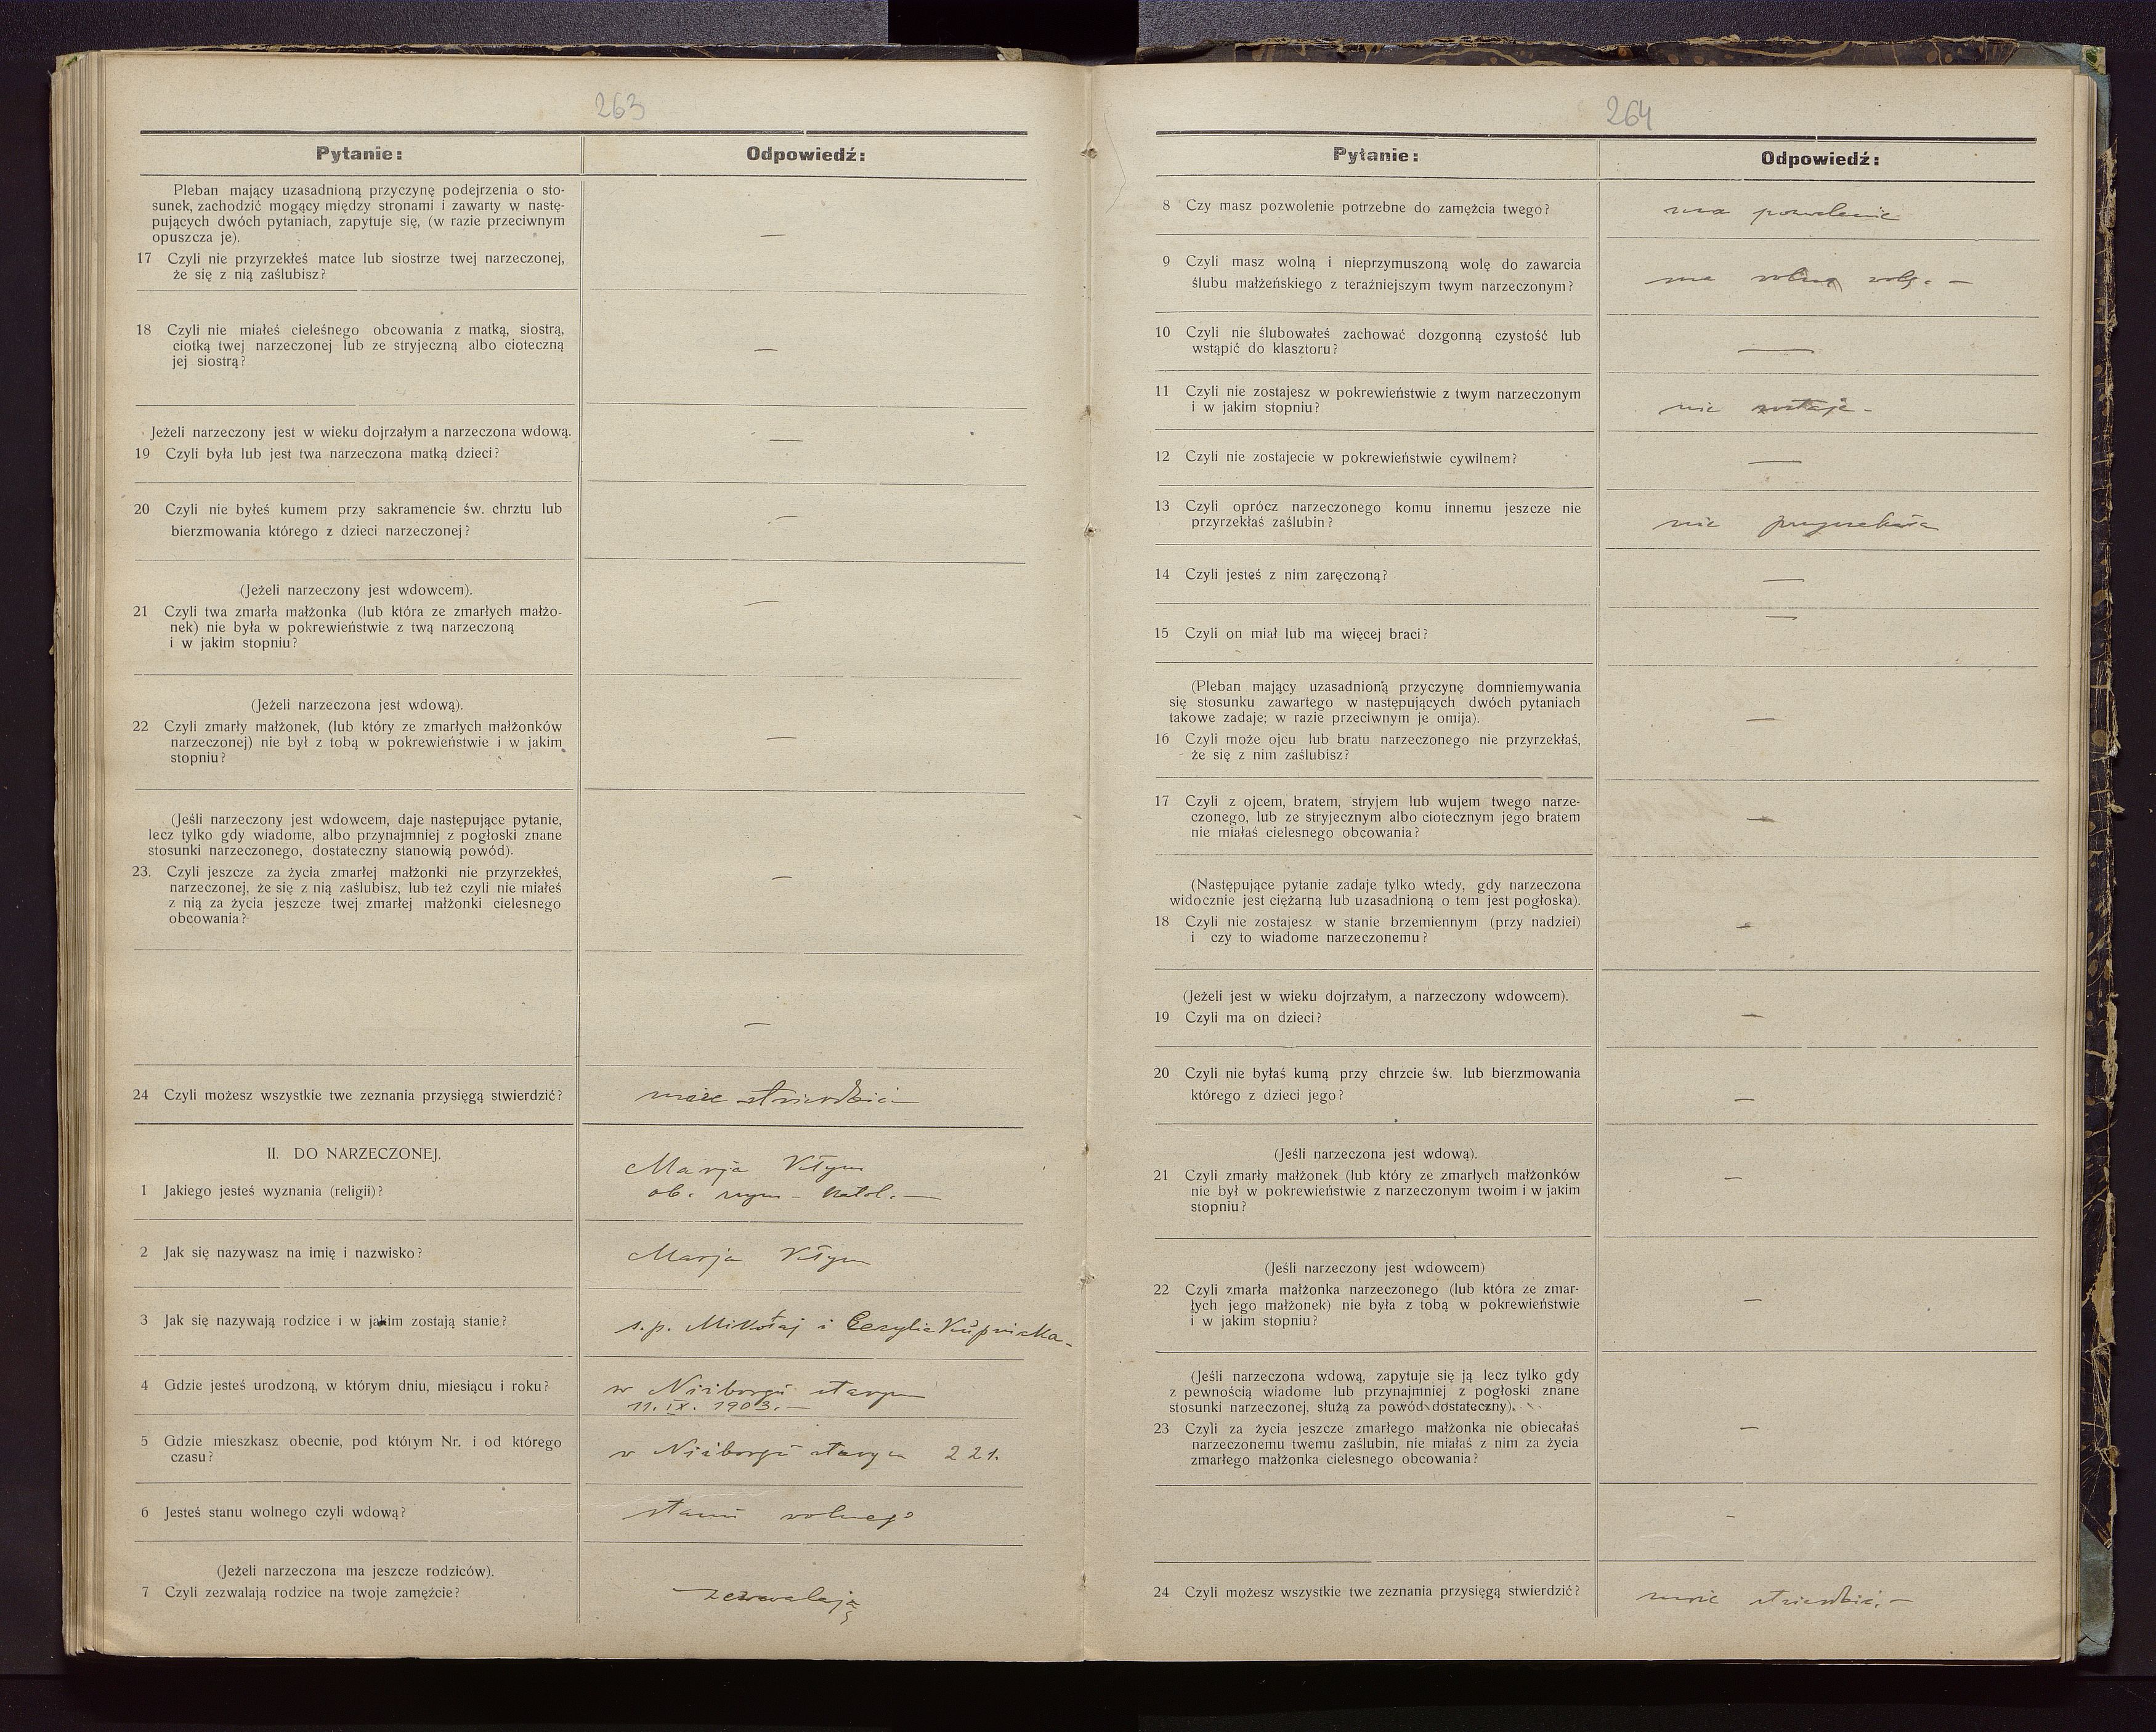 263
Pytanie:
Odpowiedź:
Pleban mający uzasadnioną przyczynę podejrzenia o sto-
sunek, zachodzić mogący między stronami i zawarty w nastę-
pujących dwóch pytaniach, zapytuje się, (w razie przeciwnym
opuszcza je).
—
17 Czyli nie przyrzekłeś matce lub siostrze twej narzeczonej,
że się z nią zaślubisz?
18 Czyli nie miałeś cieleśnego obcowania z matką, siostrą,
ciotką twej narzeczonej lub ze stryjeczną albo cioteczną
jej siostrą?
—
Jeżeli narzeczony jest w wieku dojrzałym a narzeczona wdową.
—
19 Czyli była lub jest twa narzeczona matką dzieci?
20 Czyli nie byłeś kumem przy sakramencie św. chrztu lub
bierzmowania którego z dzieci narzeczonej?
—
(Jeżeli narzeczony jest wdowcem).
21 Czyli twa zmarła małżonka (lub która ze zmarłych małżo-
nek) nie była w pokrewieństwie z twą narzeczoną
i w jakim stopniu?
—
(Jeżeli narzeczona jest wdową).
22 Czyli zmarły małżonek, (lub który ze zmarłych małżonków
narzeczonej) nie był z tobą w pokrewieństwie i w jakim
stopniu?
—
(Jeśli narzeczony jest wdowcem, daje następujące pytanie,
lecz tylko gdy wiadome, albo przynajmniej z pogłoski znane
stosunki narzeczonego, dostateczny stanowią powód).
23. Czyli jeszcze za życia zmarłej małżonki nie przyrzekłeś,
narzeczonej, że się z nią zaślubisz, lub też czyli nie miałeś
z nią za życia jeszcze twej zmarłej małżonki cielesnego
obcowania?
—
—
24 Czyli możesz wszystkie twe zeznania przysięgą stwierdzić?
może stwierdzić —
II. DO NARZECZONEJ.
Marja Kłym
1 Jakiego jesteś wyznania (religii)?
ob. rzym - katol. —
2 Jak się nazywasz na imię i nazwisko?
Marja Kłym
3 Jak się nazywają rodzice i w jakim zostają stanie?
s.p. Mikołaj i Cecylia
4 Gdzie jesteś urodzoną, w którym dniu, miesiącu i roku?
w Niżborgu starym
11. IX. 1903. —
5 Gdzie mieszkasz obecnie, pod którym Nr. i od którego
czasu?
w Niżborgu starym 221.
6 Jesteś stanu wolnego czyli wdową?
stanu wolnego
(Jeżeli narzeczona ma jeszcze rodziców).
7 Czyli zezwalają rodzice na twoje zamęźcie?
zezwalają
264
Pytanie:
Odpowiedź:
8 Czy masz pozwolenie potrzebne do zamężcia twego?
ma pozwolenie
9 Czyli masz wolną i nieprzymuszoną wolę do zawarcia
ślubu małżeńskiego z teraźniejszym twym narzeczonym?
ma wolną wolę. —
10 Czyli nie ślubowałeś zachować dozgonną czystość lub
wstąpić do klasztoru?
—
11 Czyli nie zostajesz w pokrewieństwie z twym narzeczonym
i w jakim stopniu?
nie zostaje -
12 Czyli nie zostajecie w pokrewieństwie cywilnem?
—
13 Czyli oprócz narzeczonego komu innemu jeszcze nie
przyrzekłaś zaślubin?
nie przyrzekała
14 Czyli jesteś z nim zaręczoną?
—
15 Czyli on miał lub ma więcej braci?
—
(Pleban mający uzasadnioną przyczynę domniemywania
się stosunku zawartego w następujących dwóch pytaniach
takowe zadaje; w razie przeciwnym je omija).
—
16 Czyli może ojcu lub bratu narzeczonego nie przyrzekłaś,
że się z nim zaślubisz?
17 Czyli z ojcem, bratem, stryjem lub wujem twego narze-
czonego, lub ze stryjecznym albo ciotecznym jego bratem
nie miałaś cielesnego obcowania?
—
(Następujące pytanie zadaje tylko wtedy, gdy narzeczona
widocznie jest ciężarną lub uzasadnioną o tem jest pogłoska).
18 Czyli nie zostajesz w stanie brzemiennym (przy nadziei)
i czy to wiadome narzeczonemu?
—
(Jeżeli jest w wieku dojrzałym, a narzeczony wdowcem).
19 Czyli ma on dzieci?
—
20 Czyli nie byłaś kumą przy chrzcie św. lub bierzmowania
którego z dzieci jego?
—
(Jeśli narzeczona jest wdową).
21 Czyli zmarły małżonek (lub który ze zmarłych małżonków
nie był w pokrewieństwie z narzeczonym twoim i w jakim
stopniu?
—
(Jeśli narzeczony jest wdowcem)
22 Czyli zmarła małżonka narzeczonego (lub która ze zmar-
łych jego małżonek) nie była z tobą w pokrewieństwie
i w jakim stopniu?
—
(Jeśli narzeczona wdową, zapytuje się ją lecz tylko gdy
z pewnością wiadome lub przynajmniej z pogłoski znane
stosunki narzeczonej, służą za powód dostateczny).
23 Czyli za życia jeszcze zmarłego małżonka nie obiecałaś
narzeczonemu twemu zaślubin, nie miałaś z nim za życia
zmarłego małżonka cielesnego obcowania?
—
-
24 Czyli możesz wszystkie twe zeznania przysięgą stwierdzić?
może stwierdzić. —